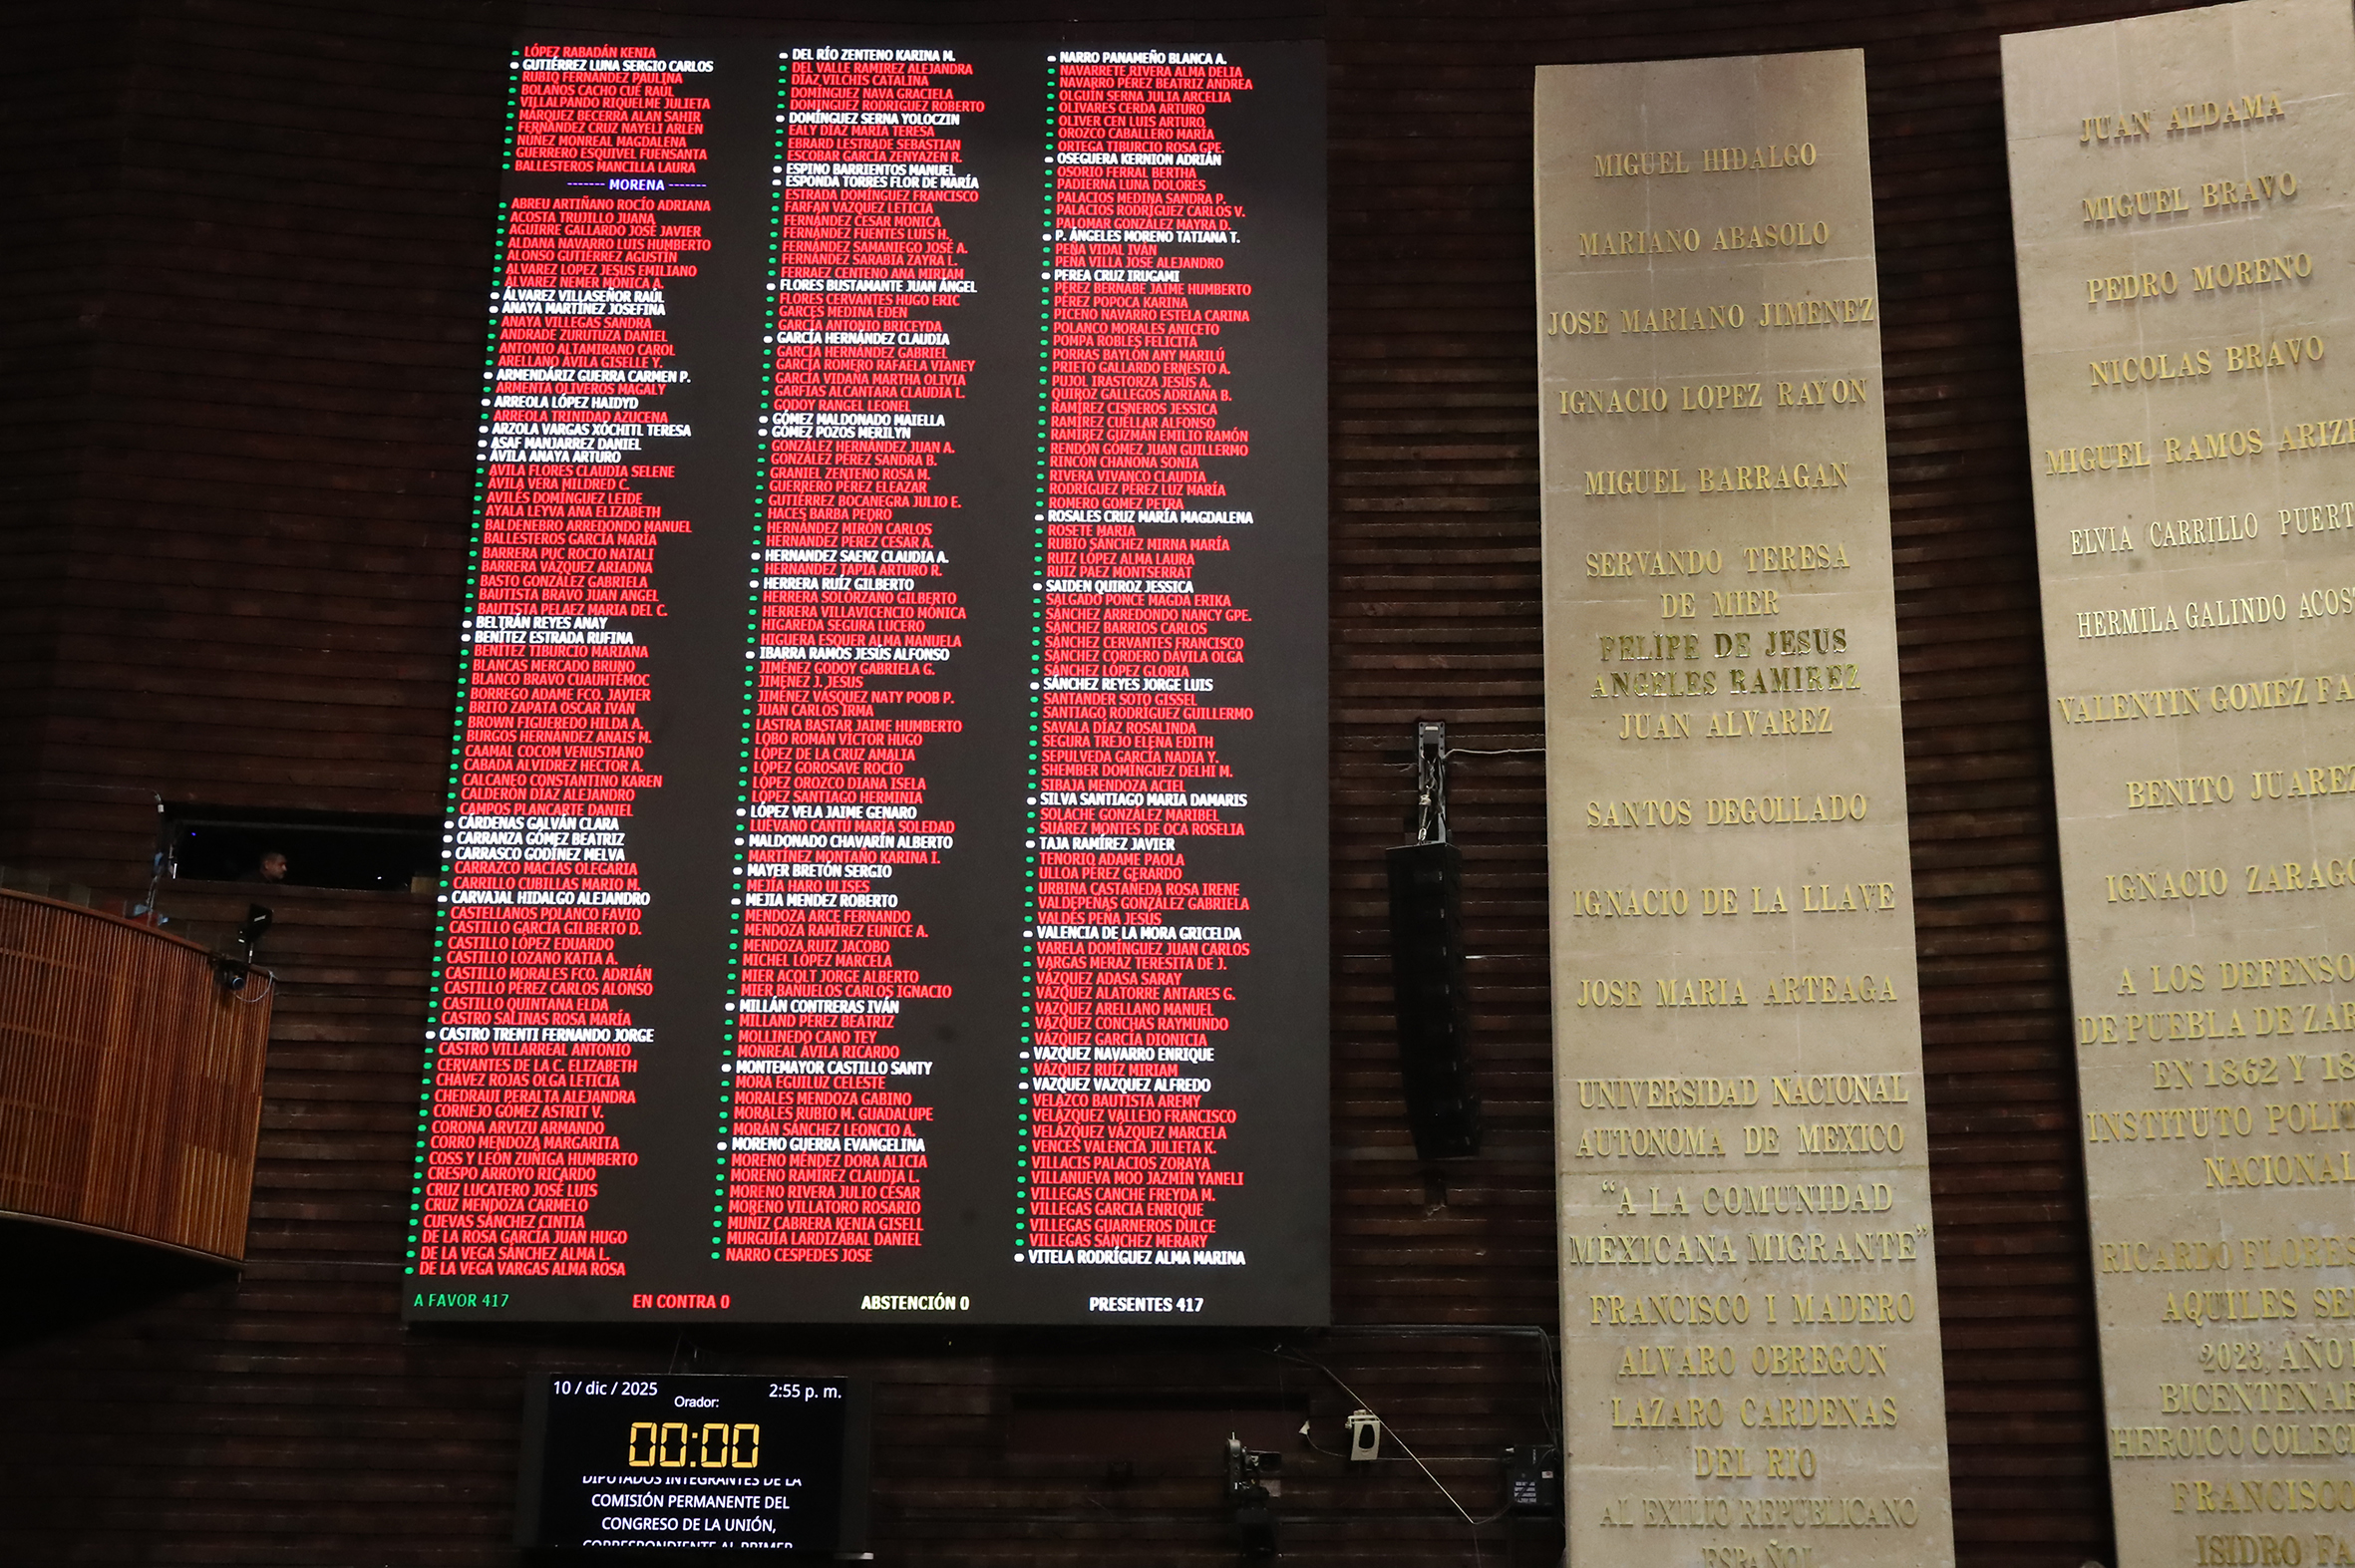 LÓPEZ RABADÁN KENIA
GUTIÉRREZ LUNA SERGIO CARLOS
RUBIO FERNÁNDEZ PAULINA
BOLAÑOS CACHO CUÉ RAÚL
VILLALPANDO RIQUELME JULIETA
MÁRQUEZ BECERRA ALAN SAHIR
FERNÁNDEZ CRUZ NAYELI ARLEN
NÚÑEZ MONREAL MAGDALENA
GUERRERO ESQUIVEL FUENSANTA
BALLESTEROS MANCILLA LAURA
------- MORENA -------
ABREU ARTIÑANO ROCÍO ADRIANA
ACOSTA TRUJILLO JUANA
AGUIRRE GALLARDO JOSÉ JAVIER
ALDANA NAVARRO LUIS HUMBERTO
ALONSO GUTIÉRREZ AGUSTÍN
ÁLVAREZ LÓPEZ JESÚS EMILIANO
ÁLVAREZ NEMER MÓNICA A.
ÁLVAREZ VILLASEÑOR RAÚL
ANAYA MARTÍNEZ JOSEFINA
ANAYA VILLEGAS SANDRA
ANDRADE ZURUTUZA DANIEL
ANTONIO ALTAMIRANO CAROL
ARELLANO ÁVILA GISELLE Y.
ARMENDÁRIZ GUERRA CARMEN P.
ARMENTA OLIVEROS MAGALY
ARREOLA LÓPEZ HAIDYD
ARREOLA TRINIDAD AZUCENA
ARZOLA VARGAS XÓCHITL TERESA
ASAF MANJARREZ DANIEL
ÁVILA ANAYA ARTURO
ÁVILA FLORES CLAUDIA SELENE
ÁVILA VERA MILDRED C.
AVILÉS DOMÍNGUEZ LEIDE
AYALA LEYVA ANA ELIZABETH
BALDENEBRO ARREDONDO MANUEL
BALLESTEROS GARCÍA MARÍA
BARRERA PUC ROCÍO NATALI
BARRERA VÁZQUEZ ARIADNA
BASTO GONZÁLEZ GABRIELA
BAUTISTA BRAVO JUAN ANGEL
BAUTISTA PELAEZ MARIA DEL C.
BELTRÁN REYES ANAY
BENÍTEZ ESTRADA RUFINA
BENÍTEZ TIBURCIO MARIANA
BLANCAS MERCADO BRUNO
BLANCO BRAVO CUAUHTÉMOC
BORREGO ADAME FCO. JAVIER
BRITO ZAPATA OSCAR IVÁN
BROWN FIGUEREDO HILDA A.
BURGOS HERNÁNDEZ ANAIS M.
CAAMAL COCOM VENUSTIANO
CABADA ALVIDREZ HECTOR A.
CALCÁNEO CONSTANTINO KAREN
CALDERÓN DÍAZ ALEJANDRO
CAMPOS PLANCARTE DANIEL
CÁRDENAS GALVÁN CLARA
CARRANZA GÓMEZ BEATRIZ
CARRASCO GODÍNEZ MELVA
CARRAZCO MACÍAS OLEGARIA
CARRILLO CUBILLAS MARIO M.
CARVAJAL HIDALGO ALEJANDRO
CASTELLANOS POLANCO FAVIO
CASTILLO GARCÍA GILBERTO D.
CASTILLO LÓPEZ EDUARDO
CASTILLO LOZANO KATIA A.
CASTILLO MORALES FCO. ADRIÁN
CASTILLO PÉREZ CARLOS ALONSO
CASTILLO QUINTANA ELDA
CASTRO SALINAS ROSA MARÍA
CASTRO TRENTI FERNANDO JORGE
CASTRO VILLARREAL ANTONIO
CERVANTES DE LA C. ELIZABETH
CHÁVEZ ROJAS OLGA LETICIA
CHEDRAUI PERALTA ALEJANDRA
CORNEJO GÓMEZ ASTRIT V.
CORONA ARVIZU ARMANDO
CORRO MENDOZA MARGARITA
COSS Y LEÓN ZÚÑIGA HUMBERTO
CRESPO ARROYO RICARDO
CRUZ LUCATERO JOSÉ LUIS
CRUZ MENDOZA CARMELO
CUEVAS SÁNCHEZ CINTIA
DE LA ROSA GARCÍA JUAN HUGO
DE LA VEGA SÁNCHEZ ALMA L.
DE LA VEGA VARGAS ALMA ROSA
DEL RÍO ZENTENO KARINA M.
DEL VALLE RAMIREZ ALEJANDRA
DÍAZ VILCHIS CATALINA
DOMÍNGUEZ NAVA GRACIELA
DOMÍNGUEZ RODRIGUEZ ROBERTO
DOMÍNGUEZ SERNA YOLOCZIN
EALY DIAZ MARÍA TERESA
EBRARD LESTRADE SEBASTIAN
ESCOBAR GARCÍA ZENYAZEN R.
ESPINO BARRIENTOS MANUEL
ESPONDA TORRES FLOR DE MARÍA
ESTRADA DOMÍNGUEZ FRANCISCO
FARFÁN VÁZQUEZ LETICIA
FERNÁNDEZ CÉSAR MÓNICA
FERNÁNDEZ FUENTES LUIS H.
FERNÁNDEZ SAMANIEGO JOSÉ A.
FERNÁNDEZ SARABIA ZAYRA L.
FERRAEZ CENTENO ANA MIRIAM
FLORES BUSTAMANTE JUAN ÁNGEL
FLORES CERVANTES HUGO ERIC
GARCÉS MEDINA EDEN
GARCÍA ANTONIO BRICEYDA
GARCÍA HERNÁNDEZ CLAUDIA
GARCÍA HERNÁNDEZ GABRIEL
GARCÍA ROMERO RAFAELA VIANEY
GARCÍA VIDAÑA MARTHA OLIVIA
GARFIAS ALCANTARA CLAUDIA L.
GODOY RANGEL LEONEL
GÓMEZ MALDONADO MAIELLA
GÓMEZ POZOS MERILYN
GONZÁLEZ HERNÁNDEZ JUAN A.
GONZÁLEZ PÉREZ SANDRA B.
GRANIEL ZENTENO ROSA M.
GUERRERO PÉREZ ELEAZAR
GUTIÉRREZ BOCANEGRA JULIO E.
HACES BARBA PEDRO
HERNÁNDEZ MIRÓN CARLOS
HERNÁNDEZ PÉREZ CESAR A.
HERNANDEZ SAENZ CLAUDIA A.
HERNÁNDEZ TAPIA ARTURO R.
HERRERA RUÍZ GILBERTO
HERRERA SOLÓRZANO GILBERTO
HERRERA VILLAVICENCIO MÓNICA
HIGAREDA SEGURA LUCERO
HIGUERA ESQUER ALMA MANUELA
IBARRA RAMOS JESÚS ALFONSO
JIMÉNEZ GODOY GABRIELA G.
JIMÉNEZ J. JESÚS
JIMÉNEZ VÁSQUEZ NATY POOB P.
JUAN CARLOS IRMA
LASTRA BASTAR JAIME HUMBERTO
LOBO ROMÁN VÍCTOR HUGO
LÓPEZ DE LA CRUZ AMALIA
LÓPEZ GOROSAVE ROCÍO
LÓPEZ OROZCO DIANA ISELA
LÓPEZ SANTIAGO HERMINIA
LÓPEZ VELA JAIME GENARO
LUÉVANO CANTÚ MARÍA SOLEDAD
MALDONADO CHAVARÍN ALBERTO
MARTÍNEZ MONTAÑO KARINA I.
MAYER BRETÓN SERGIO
MEJÍA HARO ULISES
MEJIA MENDEZ ROBERTO
MENDOZA ARCE FERNANDO
MENDOZA RAMÍREZ EUNICE A.
MENDOZA RUIZ JACOBO
MICHEL LÓPEZ MARCELA
MIER ACOLT JORGE ALBERTO
MIER BAÑUELOS CARLOS IGNACIO
MILLÁN CONTRERAS IVÁN
MILLAND PÉREZ BEATRIZ
MOLLINEDO CANO TEY
MONREAL ÁVILA RICARDO
MONTEMAYOR CASTILLO SANTY
MORA EGUILUZ CELESTE
MORALES MENDOZA GABINO
MORALES RUBIO M. GUADALUPE
MORÁN SÁNCHEZ LEONCIO A.
MORENO GUERRA EVANGELINA
MORENO MÉNDEZ DORA ALICIA
MORENO RAMÍREZ CLAUDIA L.
MORENO RIVERA JULIO CÉSAR
MORENO VILLATORO ROSARIO
MUÑIZ CABRERA KENIA GISELL
MURGUÍA LARDIZÁBAL DANIEL
NARRO CESPEDES JOSE
NARRO PANAMEÑO BLANCA A.
NAVARRETE RIVERA ALMA DELIA
NAVARRO PÉREZ BEATRIZ ANDREA
OLGUÍN SERNA JULIA ARCELIA
OLIVARES CERDA ARTURO
OLIVER CEN LUIS ARTURO
OROZCO CABALLERO MARÍA
ORTEGA TIBURCIO ROSA GPE.
OSEGUERA KERNION ADRIÁN
OSORIO FERRAL BERTHA
PADIERNA LUNA DOLORES
PALACIOS MEDINA SANDRA P.
PALACIOS RODRÍGUEZ CARLOS V.
PALOMAR GONZÁLEZ MAYRA D.
P. ÁNGELES MORENO TATIANA T.
PEÑA VIDAL IVÁN
PEÑA VILLA JOSÉ ALEJANDRO
PEREA CRUZ IRUGAMI
PÉREZ BERNABE JAIME HUMBERTO
PÉREZ POPOCA KARINA
PICENO NAVARRO ESTELA CARINA
POLANCO MORALES ANICETO
POMPA ROBLES FELICITA
PORRAS BAYLÓN ANY MARILÚ
PRIETO GALLARDO ERNESTO A.
PUJOL IRASTORZA JESÚS A.
QUIROZ GALLEGOS ADRIANA B.
RAMÍREZ CISNEROS JESSICA
RAMÍREZ CUÉLLAR ALFONSO
RAMÍREZ GUZMÁN EMILIO RAMÓN
RENDÓN GÓMEZ JUAN GUILLERMO
RINCÓN CHANONA SONIA
RIVERA VIVANCO CLAUDIA
RODRÍGUEZ PÉREZ LUZ MARÍA
ROMERO GÓMEZ PETRA
ROSALES CRUZ MARÍA MAGDALENA
ROSETE MARÍA
RUBIO SÁNCHEZ MIRNA MARÍA
RUIZ LÓPEZ ALMA LAURA
RUIZ PÁEZ MONTSERRAT
SAIDEN QUIROZ JESSICA
SALGADO PONCE MAGDA ERIKA
SÁNCHEZ ARREDONDO NANCY GPE.
SÁNCHEZ BARRIOS CARLOS
SÁNCHEZ CERVANTES FRANCISCO
SÁNCHEZ CORDERO DÁVILA OLGA
SÁNCHEZ LÓPEZ GLORIA
SÁNCHEZ REYES JORGE LUIS
SANTANDER SOTO GISSEL
SANTIAGO RODRÍGUEZ GUILLERMO
SAVALA DÍAZ ROSALINDA
SEGURA TREJO ELENA EDITH
SEPÚLVEDA GARCÍA NADIA Y.
SHEMBER DOMÍNGUEZ DELHI M.
SIBAJA MENDOZA ACIEL
SILVA SANTIAGO MARIA DAMARIS
SOLACHE GONZÁLEZ MARIBEL
SUÁREZ MONTES DE OCA ROSELIA
TAJA RAMÍREZ JAVIER
TENORIO ADAME PAOLA
ULLOA PÉREZ GERARDO
URBINA CASTAÑEDA ROSA IRENE
VALDEPEÑAS GONZÁLEZ GABRIELA
VALDÉS PEÑA JESÚS
VALENCIA DE LA MORA GRICELDA
VARELA DOMÍNGUEZ JUAN CARLOS
VARGAS MERAZ TERESITA DE J.
VÁZQUEZ ADASA SARAY
VÁZQUEZ ALATORRE ANTARES G.
VÁZQUEZ ARELLANO MANUEL
VÁZQUEZ CONCHAS RAYMUNDO
VÁZQUEZ GARCÍA DIONICIA
VAZQUEZ NAVARRO ENRIQUE
VÁZQUEZ RUÍZ MIRIAM
VAZQUEZ VAZQUEZ ALFREDO
VELAZCO BAUTISTA AREMY
VELÁZQUEZ VALLEJO FRANCISCO
VELÁZQUEZ VÁZQUEZ MARCELA
VENCES VALENCIA JULIETA K.
VILLACIS PALACIOS ZORAYA
VILLANUEVA MOO JAZMÍN YANELI
VILLEGAS CANCHE FREYDA M.
VILLEGAS GARCÍA ENRIQUE
VILLEGAS GUARNEROS DULCE
VILLEGAS SÁNCHEZ MERARY
VITELA RODRÍGUEZ ALMA MARINA
A FAVOR 417 EN CONTRA 0 ABSTENCIÓN 0 PRESENTES 417
10 / dic / 2025 2:55 p. m.
Orador:
00:00
DIPUTADOS INTEGRANTES DE LA
COMISIÓN PERMANENTE DEL
CONGRESO DE LA UNIÓN,
CORRESPONDIENTE AL PRIMER
MIGUEL HIDALGO
MARIANO ABASOLO
JOSE MARIANO JIMENEZ
IGNACIO LOPEZ RAYON
MIGUEL BARRAGAN
SERVANDO TERESA
DE MIER
FELIPE DE JESUS
ANGELES RAMIREZ
JUAN ALVAREZ
SANTOS DEGOLLADO
IGNACIO DE LA LLAVE
JOSE MARIA ARTEAGA
UNIVERSIDAD NACIONAL
AUTONOMA DE MEXICO
“A LA COMUNIDAD
MEXICANA MIGRANTE”
FRANCISCO I MADERO
ALVARO OBREGON
LAZARO CARDENAS
DEL RIO
AL EXILIO REPUBLICANO
ESPAÑOL
JUAN ALDAMA
MIGUEL BRAVO
PEDRO MORENO
NICOLAS BRAVO
MIGUEL RAMOS ARIZP
ELVIA CARRILLO PUERT
HERMILA GALINDO ACOS
VALENTIN GOMEZ FA
BENITO JUAREZ
IGNACIO ZARAGO
A LOS DEFENSO
DE PUEBLA DE ZAR
EN 1862 Y 18
INSTITUTO POLIT
NACIONAL
RICARDO FLORES
AQUILES SE
2023, AÑO
BICENTENAR
HEROICO COLEG
FRANCISCO
ISIDRO FA